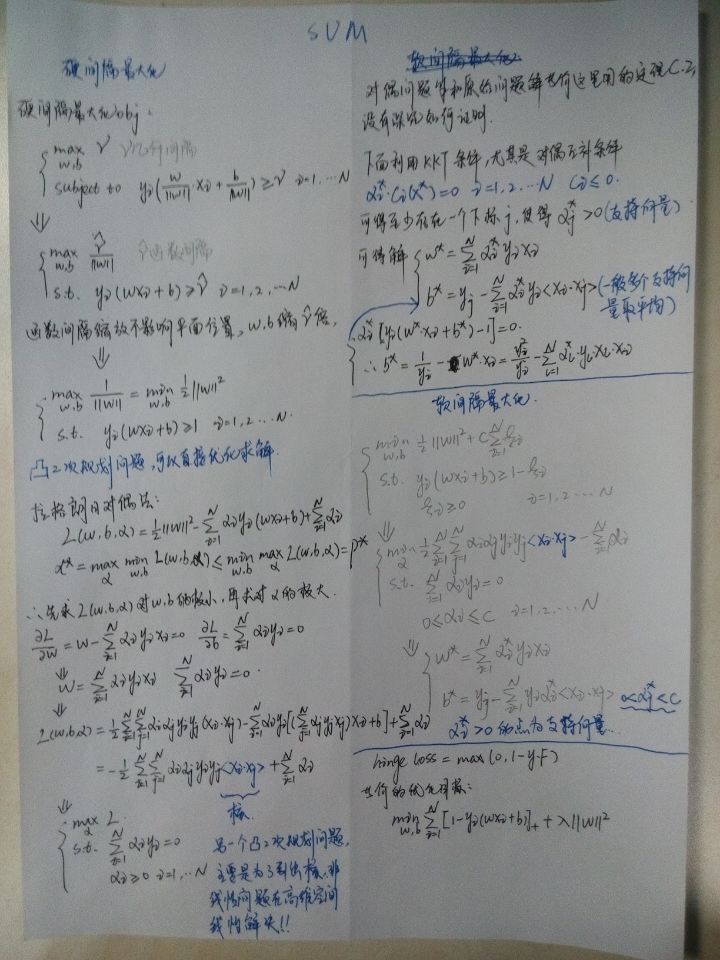 SVM
硬间隔最大化
硬间隔最大化obj:
max γ γ几何间隔
w,b
subject to y_i(w/||w||·x_i + b/||w||) ≥ γ i=1,...N
⇓
max γ̂/||w|| γ̂函数间隔
w,b
s.t. y_i(wx_i+b) ≥ γ̂ i=1,2,...N
函数间隔缩放不影响平面位置, w,b缩γ̂倍,
⇓
max 1/||w|| = min ½||w||²
w,b w,b
s.t. y_i(wx_i+b) ≥ 1 i=1,2...N.
凸2次规划问题,可以直接优化求解.
拉格朗日对偶法:
L(w,b,α) = ½||w||² - Σ_{i=1}^N α_i y_i(wx_i+b) + Σ_{i=1}^N α_i
d* = max_α min_{w,b} L(w,b,α) ≤ min_{w,b} max_α L(w,b,α) = p*
∴先求L(w,b,α)对w,b的极小,再求对α的极大.
∂L/∂w = w - Σ_{i=1}^N α_i y_i x_i = 0 ∂L/∂b = Σ_{i=1}^N α_i y_i = 0
⇓ w = Σ_{i=1}^N α_i y_i x_i Σ_{i=1}^N α_i y_i = 0.
⇓
L(w,b,α) = ½ Σ_{i=1}^N Σ_{j=1}^N α_i α_j y_i y_j (x_i·x_j) - Σ_{i=1}^N α_i y_i[(Σ_{j=1}^N α_j y_j x_j)x_i+b] + Σ_{i=1}^N α_i
= -½ Σ_{i=1}^N Σ_{j=1}^N α_i α_j y_i y_j <x_i·x_j> + Σ_{i=1}^N α_i
核
⇓
max_α L
s.t. Σ_{i=1}^N α_i y_i = 0
α_i ≥ 0 i=1,...N
另一个凸2次规划问题,
主要是为了引出核,非
线性问题在高维空间
线性解决!!
软间隔最大化
对偶问题等和原始问题解共何这里用的定理C.2,
没有深究如何证明.
下面利用KKT条件,尤其是对偶互补条件
α_i*·C_i(x*)=0 i=1,2,...N C_i≤0.
可得至少存在一个下标j,使得α_j*>0(支持向量)
可得解 w* = Σ_{i=1}^N α_i* y_i x_i
b* = y_j - Σ_{i=1}^N α_i* y_i <x_i·x_j> (一般多个支持向
量取平均)
α_i*[y_i(w*·x_i+b*)-1]=0.
∴ b* = 1/y_i - w*·x_i = y_i²/y_i - Σ_{i=1}^N α_i*·y_i·x_i·x_i
软间隔最大化.
min_{w,b} ½||w||² + C Σ_{i=1}^N ξ_i
s.t. y_i(wx_i+b) ≥ 1-ξ_i
ξ_i ≥ 0 i=1,2,...N
⇓
min_α ½ Σ_{i=1}^N Σ_{j=1}^N α_i α_j y_i y_j <x_i·x_j> - Σ_{i=1}^N α_i
s.t. Σ_{i=1}^N α_i y_i = 0
0≤α_i≤C i=1,2,...N
⇓ w* = Σ_{i=1}^N α_i* y_i x_i
b* = y_j - Σ_{i=1}^N y_i α_i* <x_i·x_j> 0<α_j*<C
α_i*>0的点为支持向量.
hinge loss = max(0, 1-y·F)
共何的优化目标:
min_{w,b} Σ_{i=1}^N [1-y_i(wx_i+b)]₊ + λ||w||²